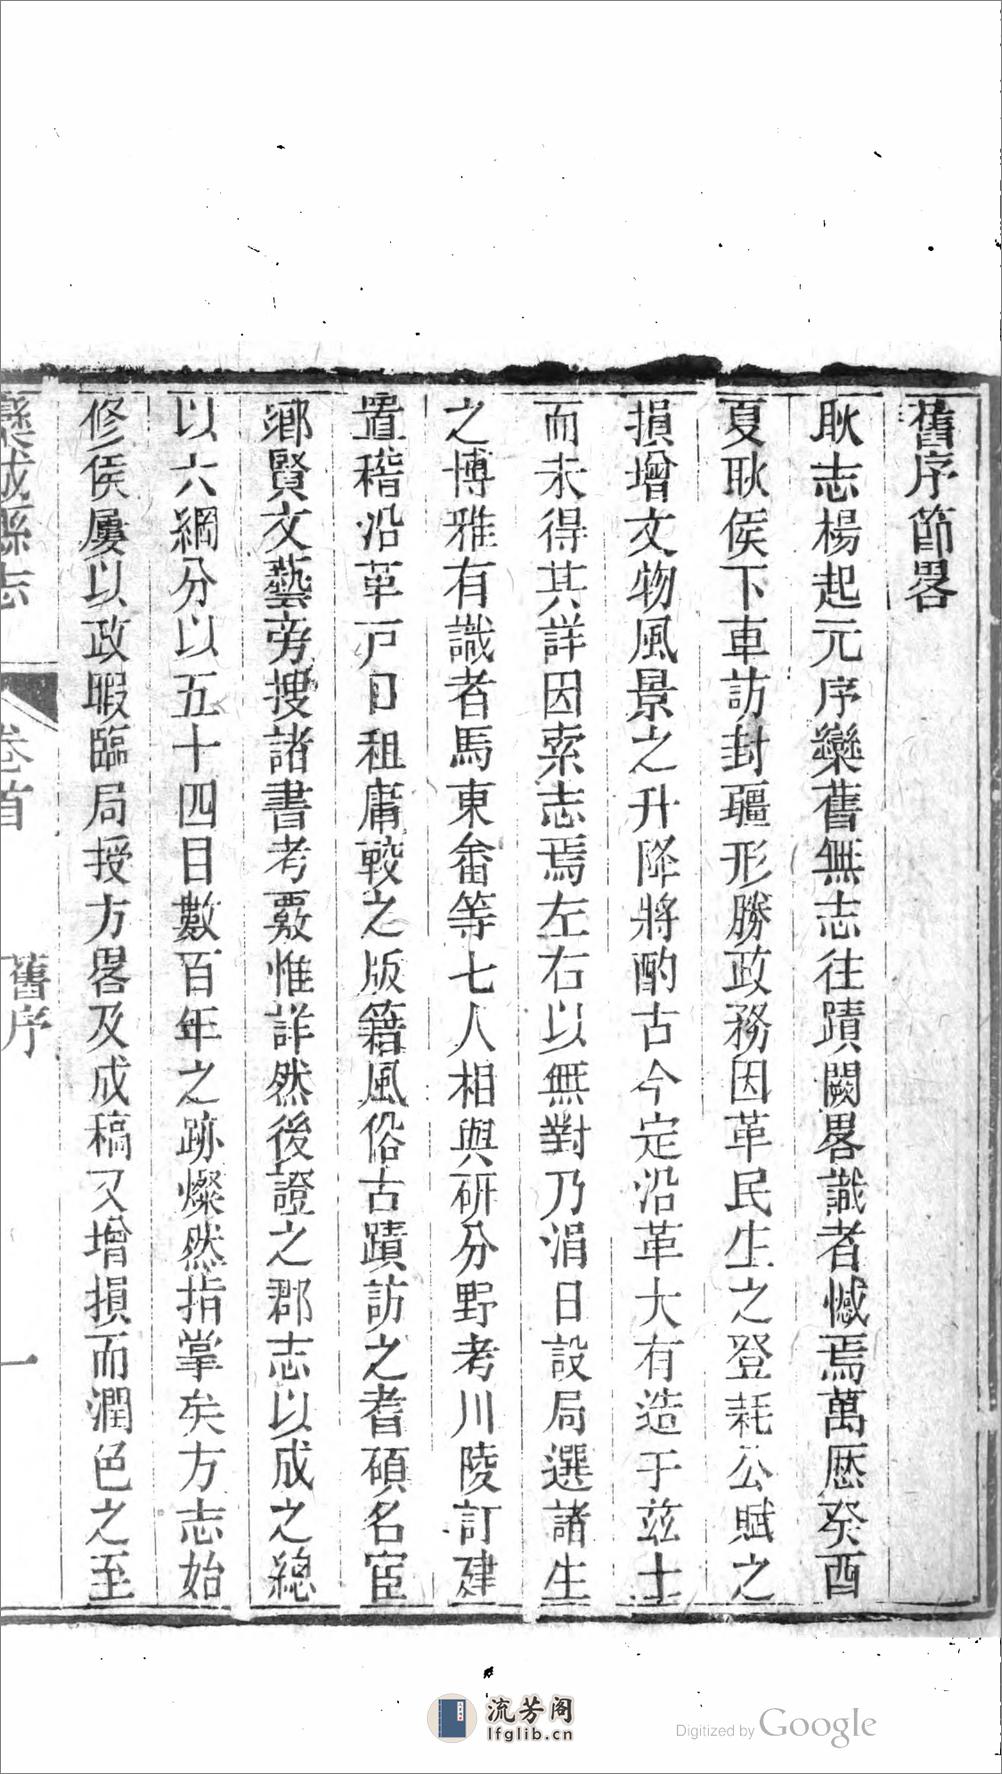 舊序節畧
耿志楊起元序欒舊無志往蹟闕畧識者憾焉萬厯癸酉
夏耿侯下車訪封疆形勝政務因革民生之登耗公賦之
損增文物風景之升降將酌古今定沿革大有造于茲土
而未得其詳因索志焉左右以無對乃涓日設局選諸生
之博雅有識者馬東畨等七人相與硏分野考川陵訂建
置稽沿革戸口租庸較之版籍風俗古蹟訪之耆碩名宦
鄉賢文藝旁搜諸書考覈惟詳然後證之郡志以成之總
以六綱分以五十四目數百年之跡燦然指掌矣方志始
修侯屢以政暇臨局授方畧及成稿又增損而潤色之至
欒城縣志
卷首
舊序
一
流芳阁
lfglib.cn
Digitized by Google